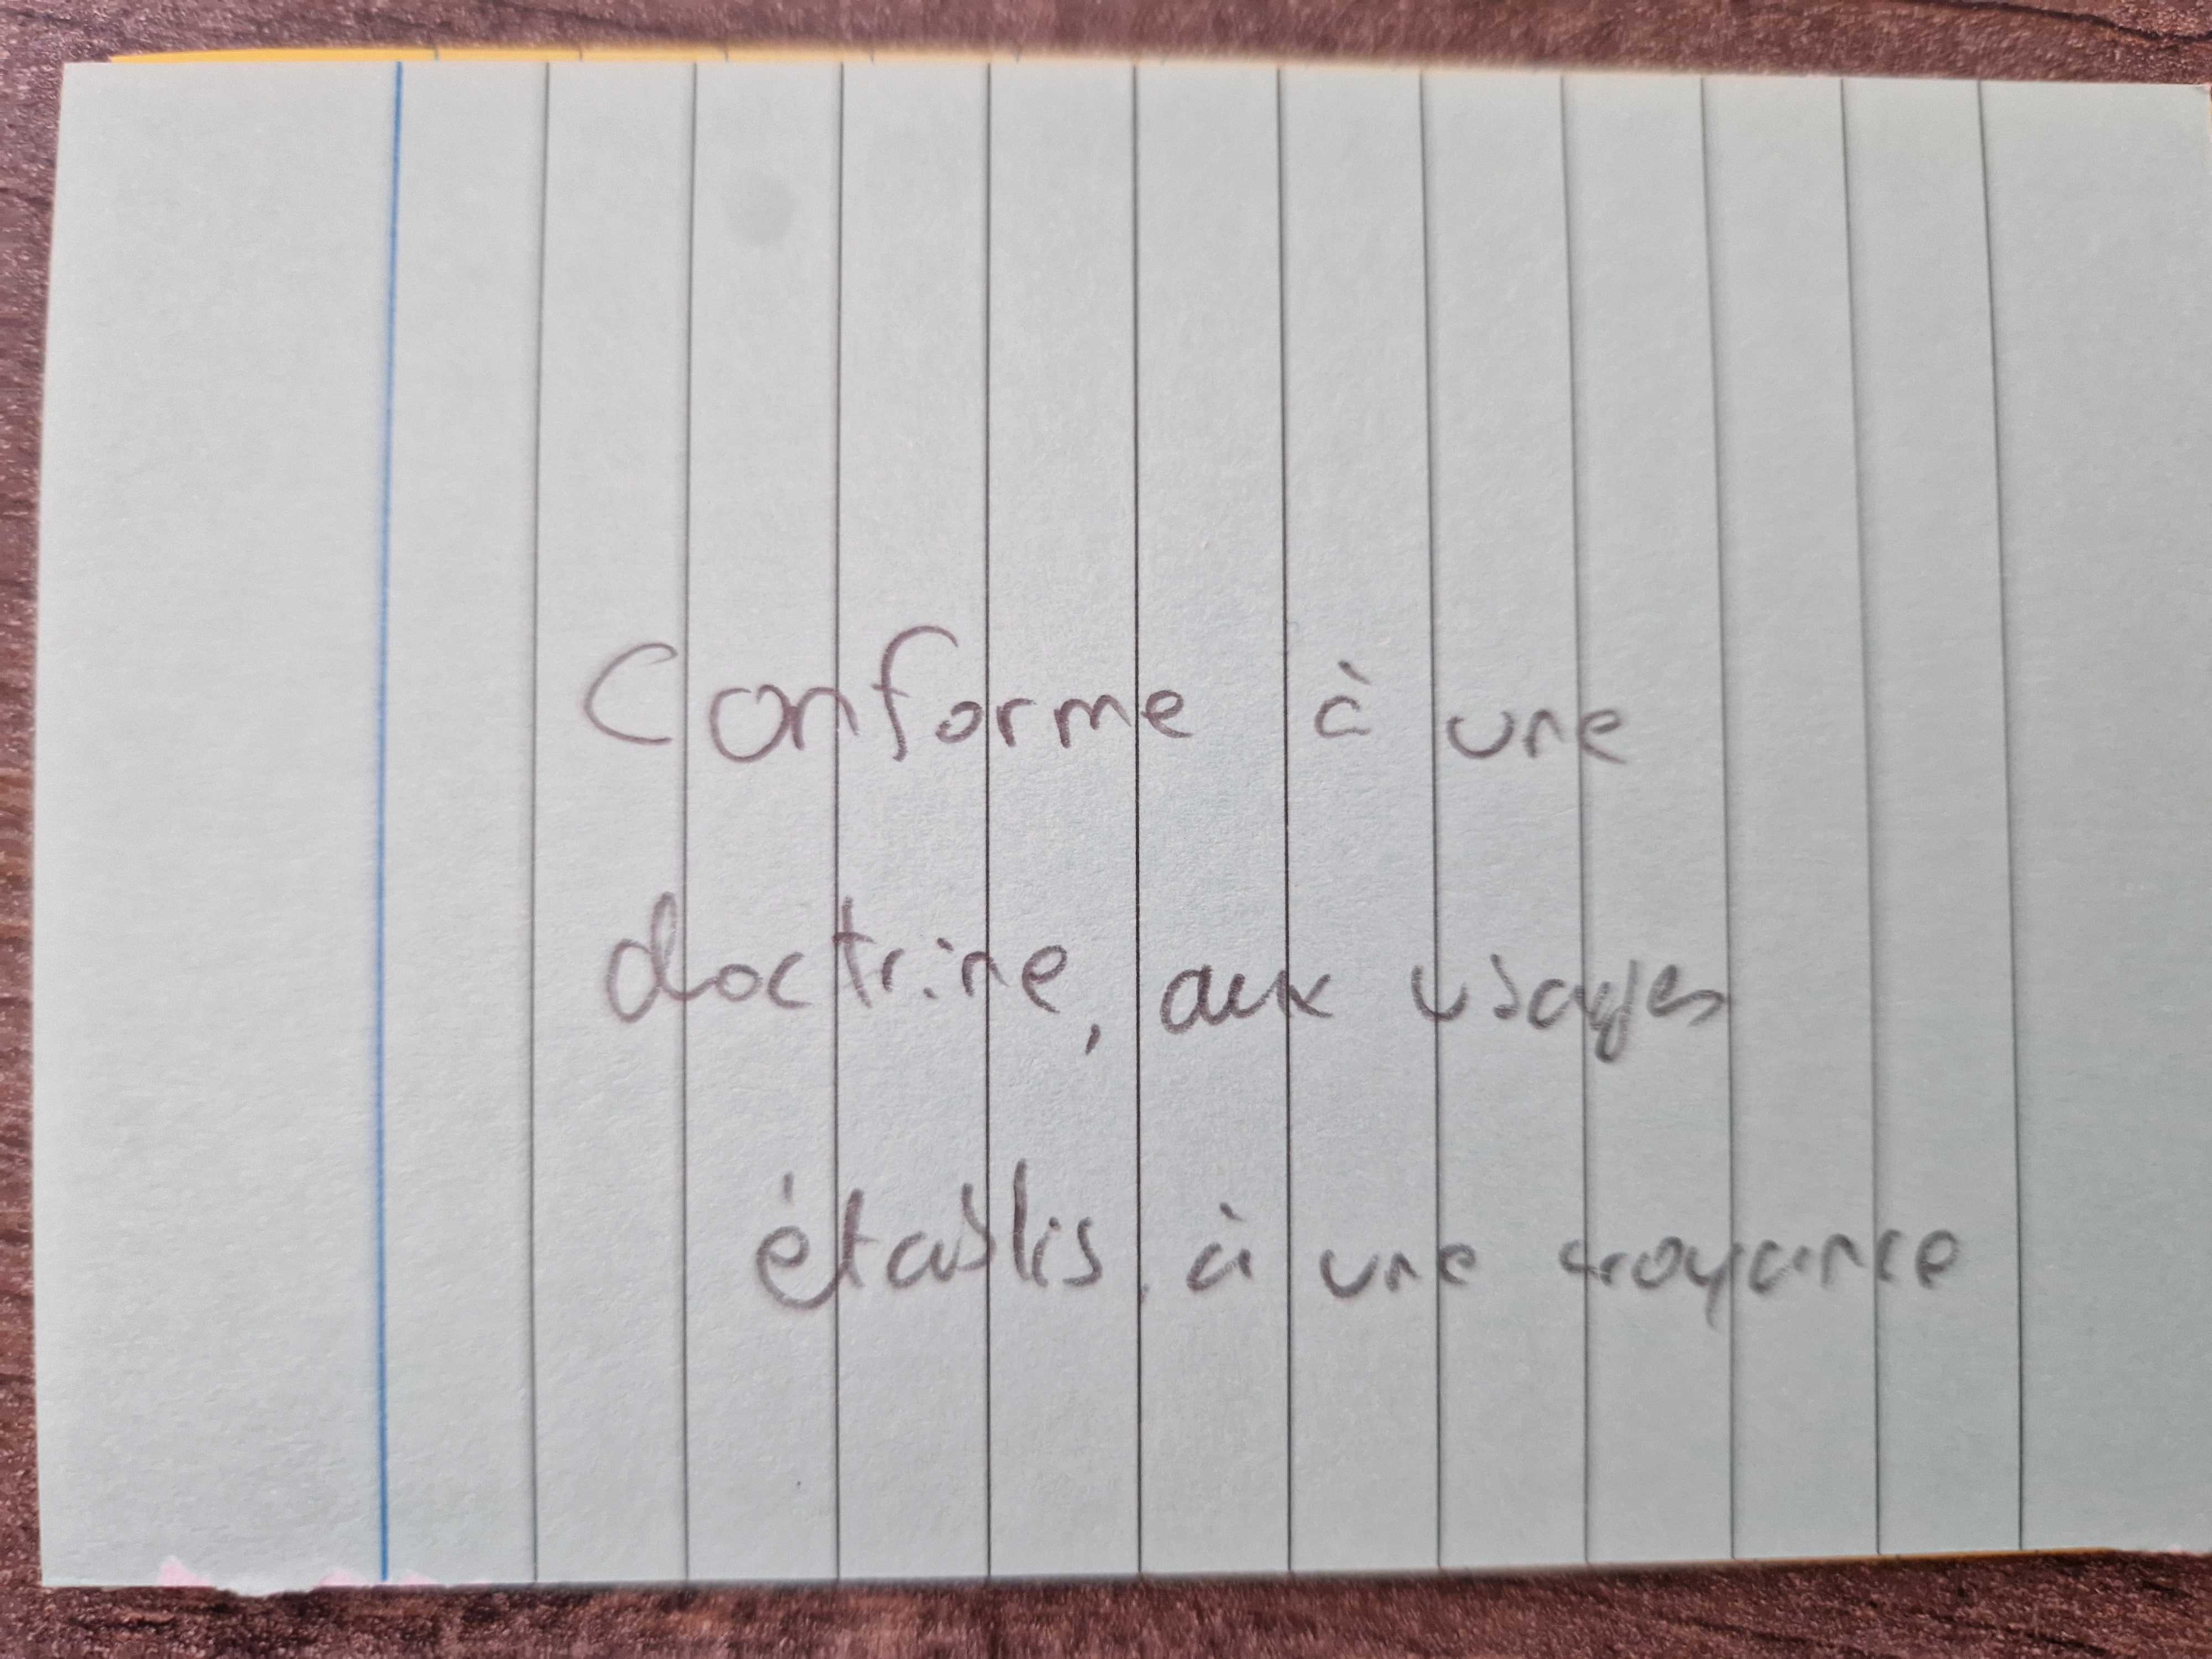 Conforme à une
doctrine, aux usages
établis, à une croyance